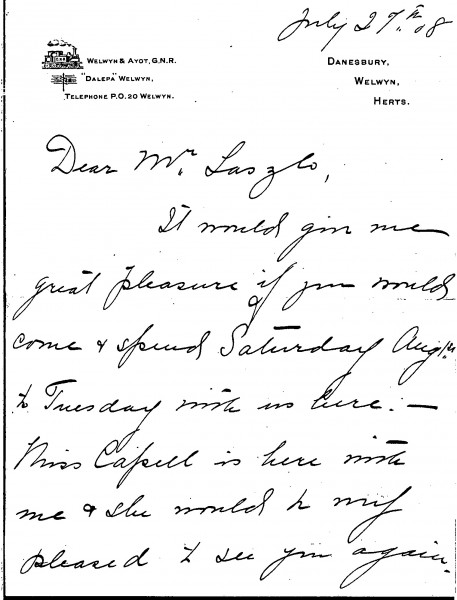 July 27.th 08
WELWYN & AYOT, G.N.R.
"DALEPA" WELWYN,
TELEPHONE P.O. 20 WELWYN.
DANESBURY,
WELWYN,
HERTS.
Dear Mr. Laszlo,
It would give me
great pleasure if you would
come & spend Saturday Aug 1st
to Tuesday with us here. —
Miss Capell is here with
me & she would be very
pleased to see you again.